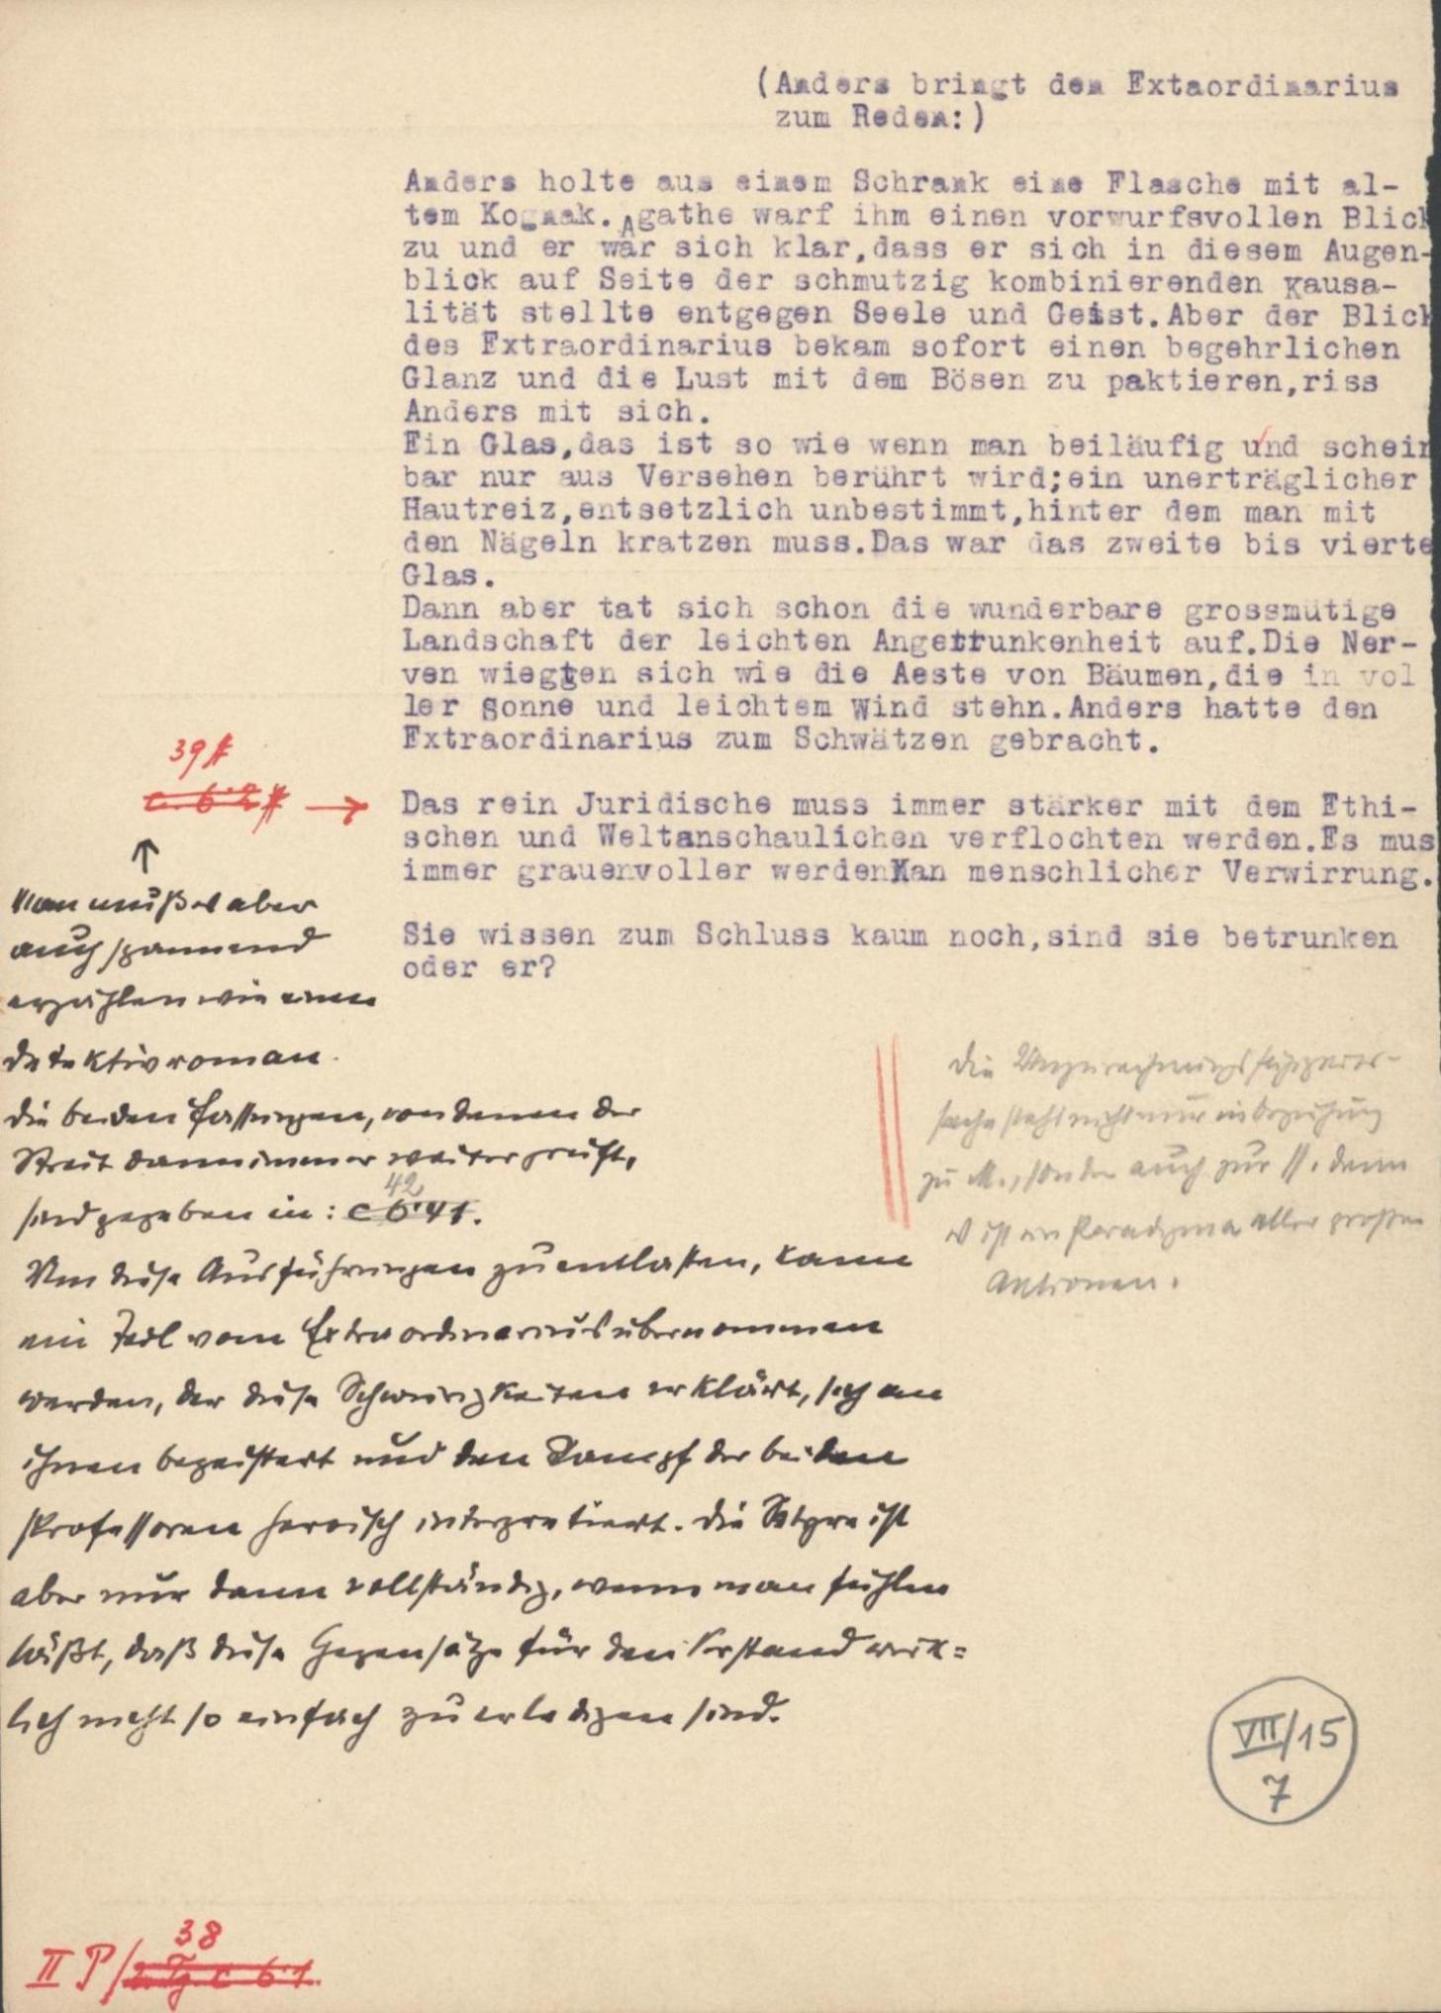 (Anders bringt den Extaordinarius
zum Reden:)
Anders holte aus einem Schrank eine Flasche mit al-
tem Kognak. Agathe warf ihm einen vorwurfsvollen Blick
zu und er war sich klar,dass er sich in diesem Augen-
blick auf Seite der schmutzig kombinierenden Kausa-
lität stellte entgegen Seele und Geist.Aber der Blick
des Extraordinarius bekam sofort einen begehrlichen
Glanz und die Lust mit dem Bösen zu paktieren,riss
Anders mit sich.
Ein Glas,das ist so wie wenn man beiläufig und schein
bar nur aus Versehen berührt wird;ein unerträglicher
Hautreiz,entsetzlich unbestimmt,hinter dem man mit
den Nägeln kratzen muss.Das war das zweite bis vierte
Glas.
Dann aber tat sich schon die wunderbare grossmütige
Landschaft der leichten Angetrunkenheit auf.Die Ner-
ven wiegten sich wie die Aeste von Bäumen,die in vol
ler Sonne und leichtem Wind stehn.Anders hatte den
Extraordinarius zum Schwätzen gebracht.
39
c. 6·2 →
Das rein Juridische muss immer stärker mit dem Ethi-
schen und Weltanschaulichen verflochten werden.Es mus
immer grauenvoller werden an menschlicher Verwirrung.
Sie wissen zum Schluss kaum noch,sind sie betrunken
oder er?
↑
Man muß es aber
auch spannend
erzählen wie einen
Detektivroman.
Die beiden Fassungen, von denen der
Streit dann immer weiter greift,
sind gegeben in: c 6·41.
42
Um diese Ausführungen zu entlasten, kann
ein Teil vom Extraordinarius übernommen
werden, der diese Schwierigkeiten erklärt, sich an
ihnen begeistert und den Kampf der beiden
Professoren heroisch interpretiert. Die Satyre ist
aber nur dann vollständig, wenn man fühlen
läßt, daß diese Gegensätze für den Verstand wirk=
lich nicht so einfach zu erledigen sind.
Die Unzurechnungsfähigkeits-
sache steht nicht nur in Beziehung
zu M., sondern auch zur //. denn
es ist ein Paradigma aller großen
Aktionen.
VII/15
7
38
II P/2. Tg. c 6·1.